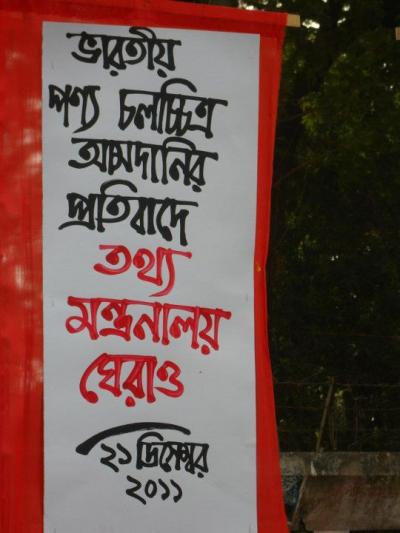 ভারতীয়
পণ্য চলচ্চিত্র
আমদানির
প্রতিবাদে
তথ্য
মন্ত্রনালয়
ঘেরাও
২১ ডিসেম্বর
২০১১